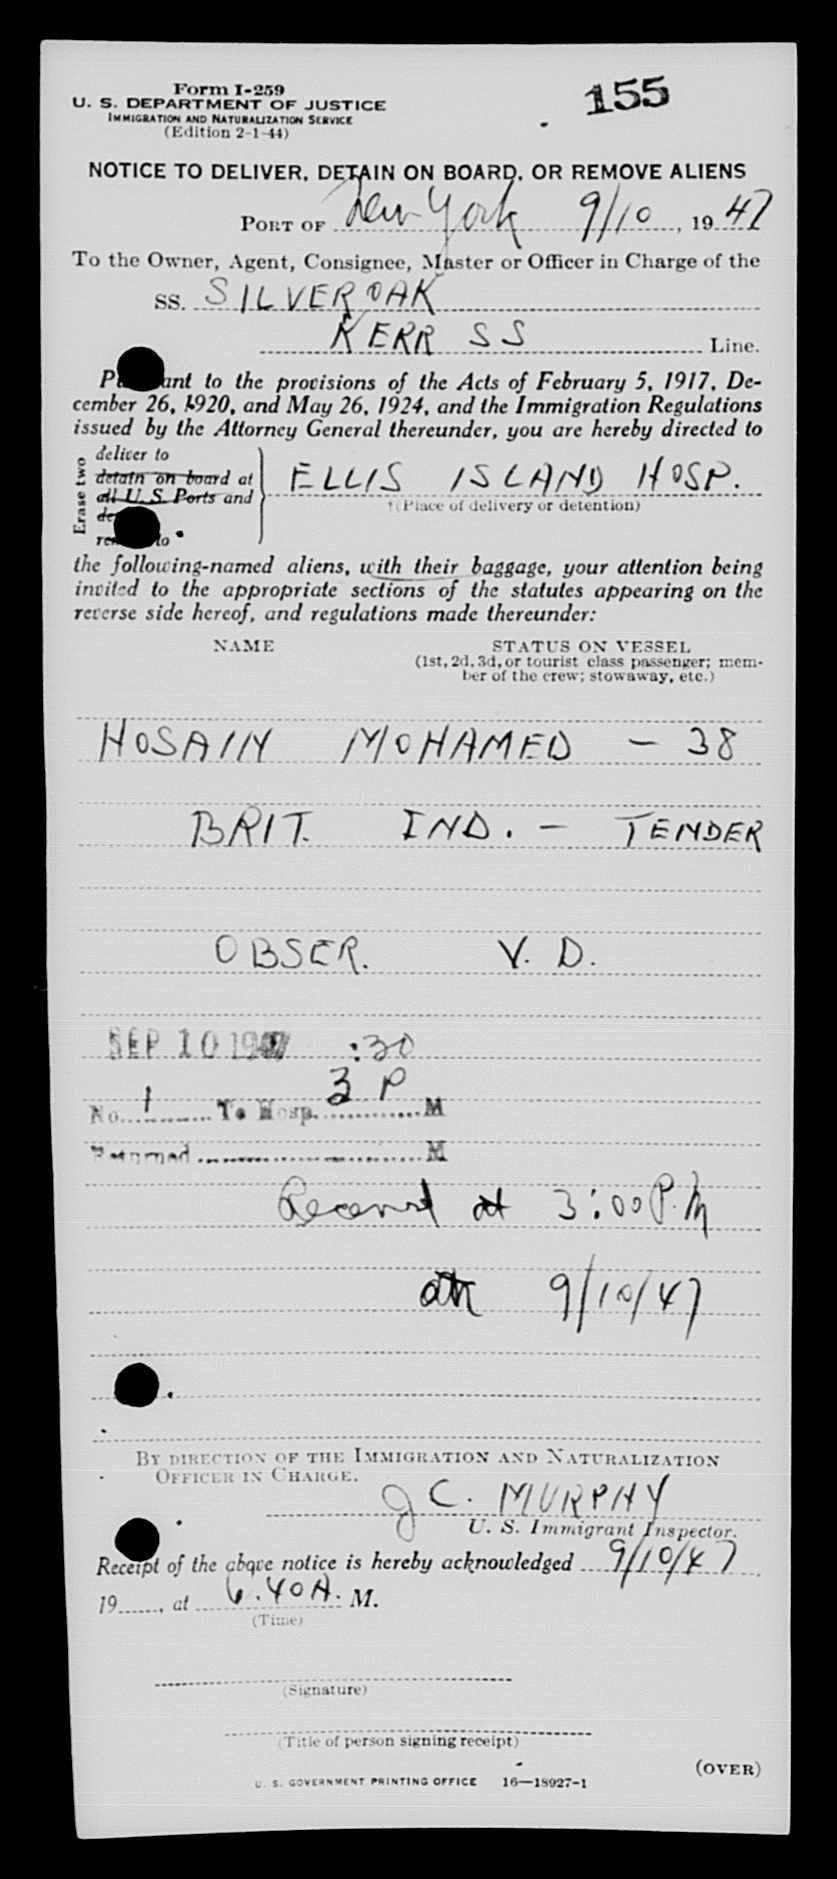 Form I-259
U. S. DEPARTMENT OF JUSTICE
IMMIGRATION AND NATURALIZATION SERVICE
(Edition 2-1-44)
155
NOTICE TO DELIVER, DETAIN ON BOARD, OR REMOVE ALIENS
PORT OF New York 9/10, 1947
To the Owner, Agent, Consignee, Master or Officer in Charge of the
SS. SILVEROAK
KERR SS Line.
Pursuant to the provisions of the Acts of February 5, 1917, De-
cember 26, 1920, and May 26, 1924, and the Immigration Regulations
issued by the Attorney General thereunder, you are hereby directed to
Erase two
deliver to
detain on board at
all U. S. Ports and
ELLIS ISLAND HOSP.
†(Place of delivery or detention)
the following-named aliens, with their baggage, your attention being
invited to the appropriate sections of the statutes appearing on the
reverse side hereof, and regulations made thereunder:
NAME STATUS ON VESSEL
(1st, 2d, 3d, or tourist class passenger; mem-
ber of the crew; stowaway, etc.)
HOSAIN MOHAMED - 38
BRIT. IND. - TENDER
OBSER. V. D.
SEP 10 1947 :30
No. 1 To Hosp. 3 P M
Returned M
Received at 3:00 P.M
9/10/47
BY DIRECTION OF THE IMMIGRATION AND NATURALIZATION
OFFICER IN CHARGE.
J C. MURPHY
U. S. Immigrant Inspector.
Receipt of the above notice is hereby acknowledged 9/10/47
19......, at 6.40 A. M.
(Time)
(Signature)
(Title of person signing receipt)
(OVER)
U. S. GOVERNMENT PRINTING OFFICE 16—18927-1